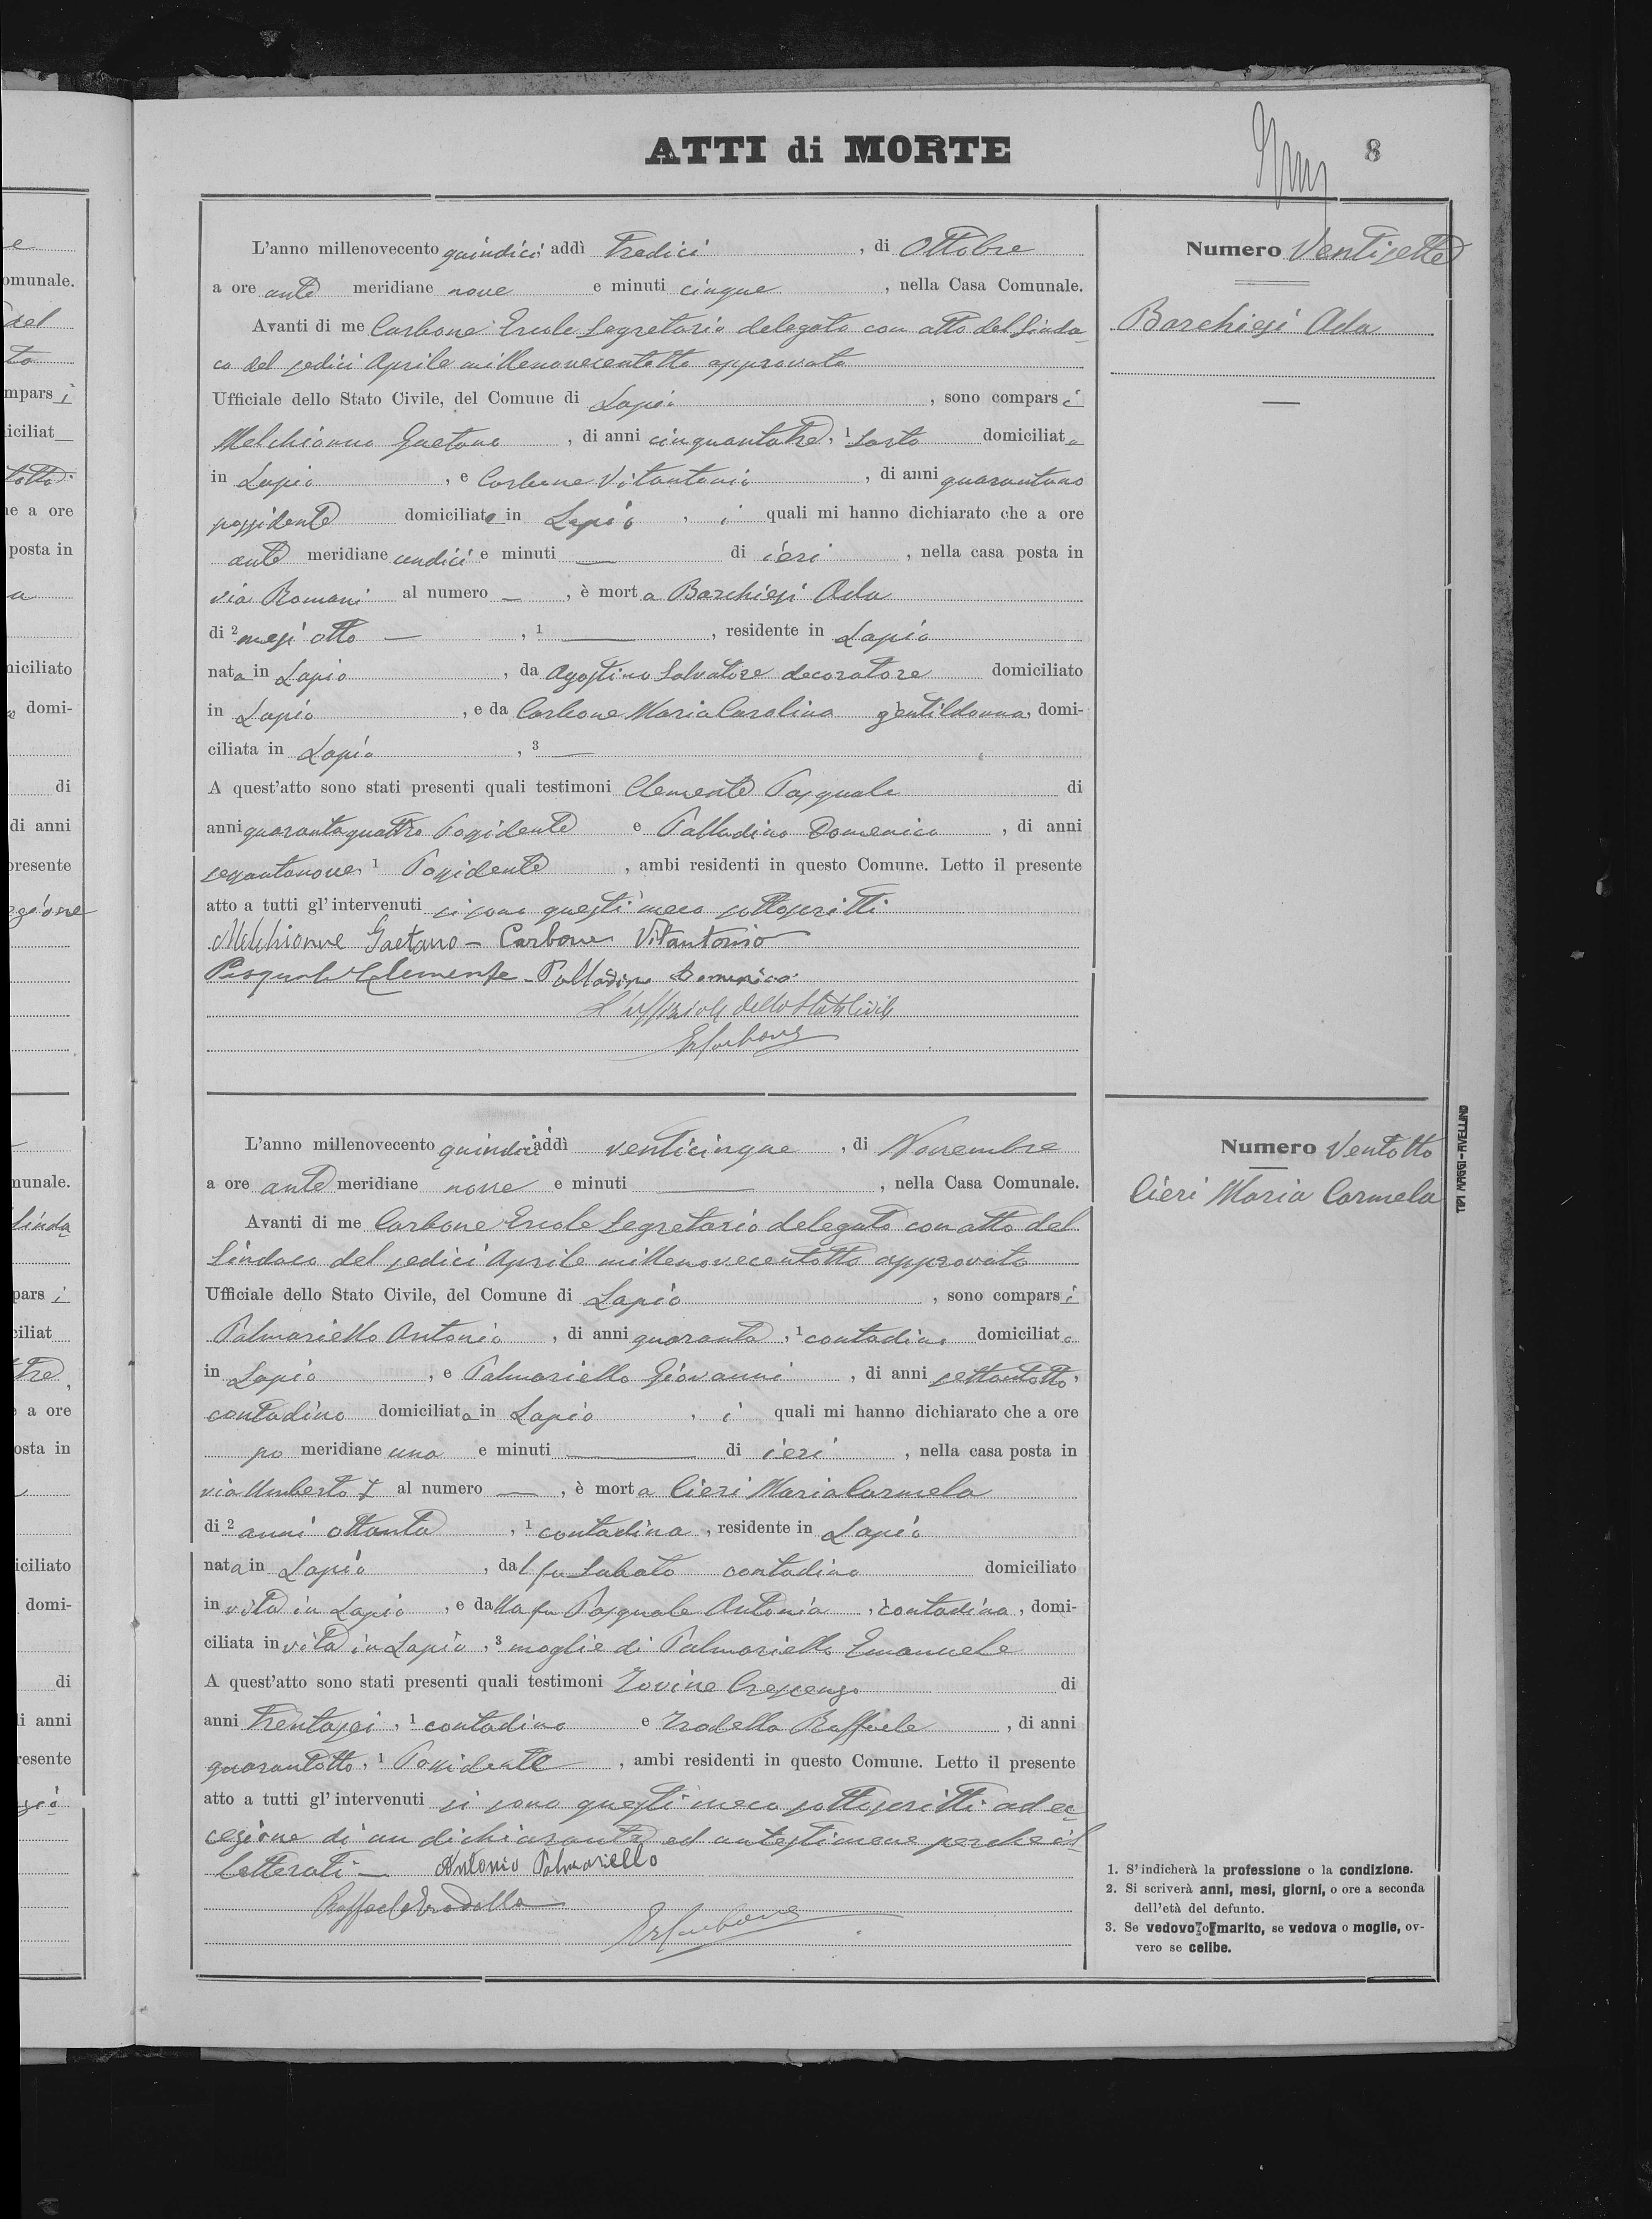 ATTI di MORTE
8
L'anno millenovecento quindici addì tredici, di Ottobre
a ore ante meridiane nove e minuti cinque, nella Casa Comunale.
Avanti di me Carbone Ercole Segretario delegato con atto del Sinda-
co del sedici Aprile millenovecentotto approvato
Ufficiale dello Stato Civile, del Comune di Lapio, sono comparsi
Melchionne Gaetano, di anni cinquantatre, 1 sarto domiciliato
in Lapio, e Carbone Vitantonio, di anni quarantuno
possidente domiciliato in Lapio, i quali mi hanno dichiarato che a ore
ante meridiane undici e minuti — di ieri, nella casa posta in
via Romani al numero —, è morta Barchiesi Ada
di 2 mesi otto —, 1 —, residente in Lapio
nata in Lapio, da Agostino Salvatore decoratore domiciliato
in Lapio, e da Carbone Maria Carolina gentildonna, domi-
ciliata in Lapio, 3 —
A quest'atto sono stati presenti quali testimoni Clemente Pasquale di
anni quarantaquattro Possidente e Palladino Domenico, di anni
sessantanove, 1 Possidente, ambi residenti in questo Comune. Letto il presente
atto a tutti gl'intervenuti si sono questi meco sottoscritti
Melchionne Gaetano – Carbone Vitantonio
Pasquale Clemente – Palladino Domenico
L'ufficiale dello Stato Civile
ErCarbone
Numero Ventisette
Barchiesi Ada
L'anno millenovecento quindici addì venticinque, di Novembre
a ore ante meridiane nove e minuti —, nella Casa Comunale.
Avanti di me Carbone Ercole Segretario delegato con atto del
Sindaco del sedici Aprile millenovecentotto approvato
Ufficiale dello Stato Civile, del Comune di Lapio, sono comparsi
Palmariello Antonio, di anni quaranta, 1 contadino domiciliato
in Lapio, e Palmariello Giovanni, di anni settantotto,
contadino domiciliato in Lapio, i quali mi hanno dichiarato che a ore
po meridiane una e minuti — di ieri, nella casa posta in
via Umberto I al numero —, è morta Cieri Maria Carmela
di 2 anni ottanta, 1 contadina, residente in Lapio
nata in Lapio, dal fu Sabato contadino domiciliato
in vita in Lapio, e dalla fu Pasquale Antonia, contadina, domi-
ciliata in vita in Lapio, 3 moglie di Palmariello Emanuele
A quest'atto sono stati presenti quali testimoni Iovine Crescenzo di
anni trentasei, 1 contadino e Trodella Raffaele, di anni
quarantotto, 1 Possidente, ambi residenti in questo Comune. Letto il presente
atto a tutti gl'intervenuti si sono questi meco sottoscritti ad ec-
cezione di un dichiarante ed un testimone perche il
letterati – Antonio Palmariello
Raffaele Trodella
ErCarbone
Numero Ventotto
Cieri Maria Carmela
TIPI MAGGI - AVELLINO
1. S'indicherà la professione o la condizione.
2. Si scriverà anni, mesi, giorni, o ore a seconda
dell'età del defunto.
3. Se vedovo o marito, se vedova o moglie, ov-
vero se celibe.